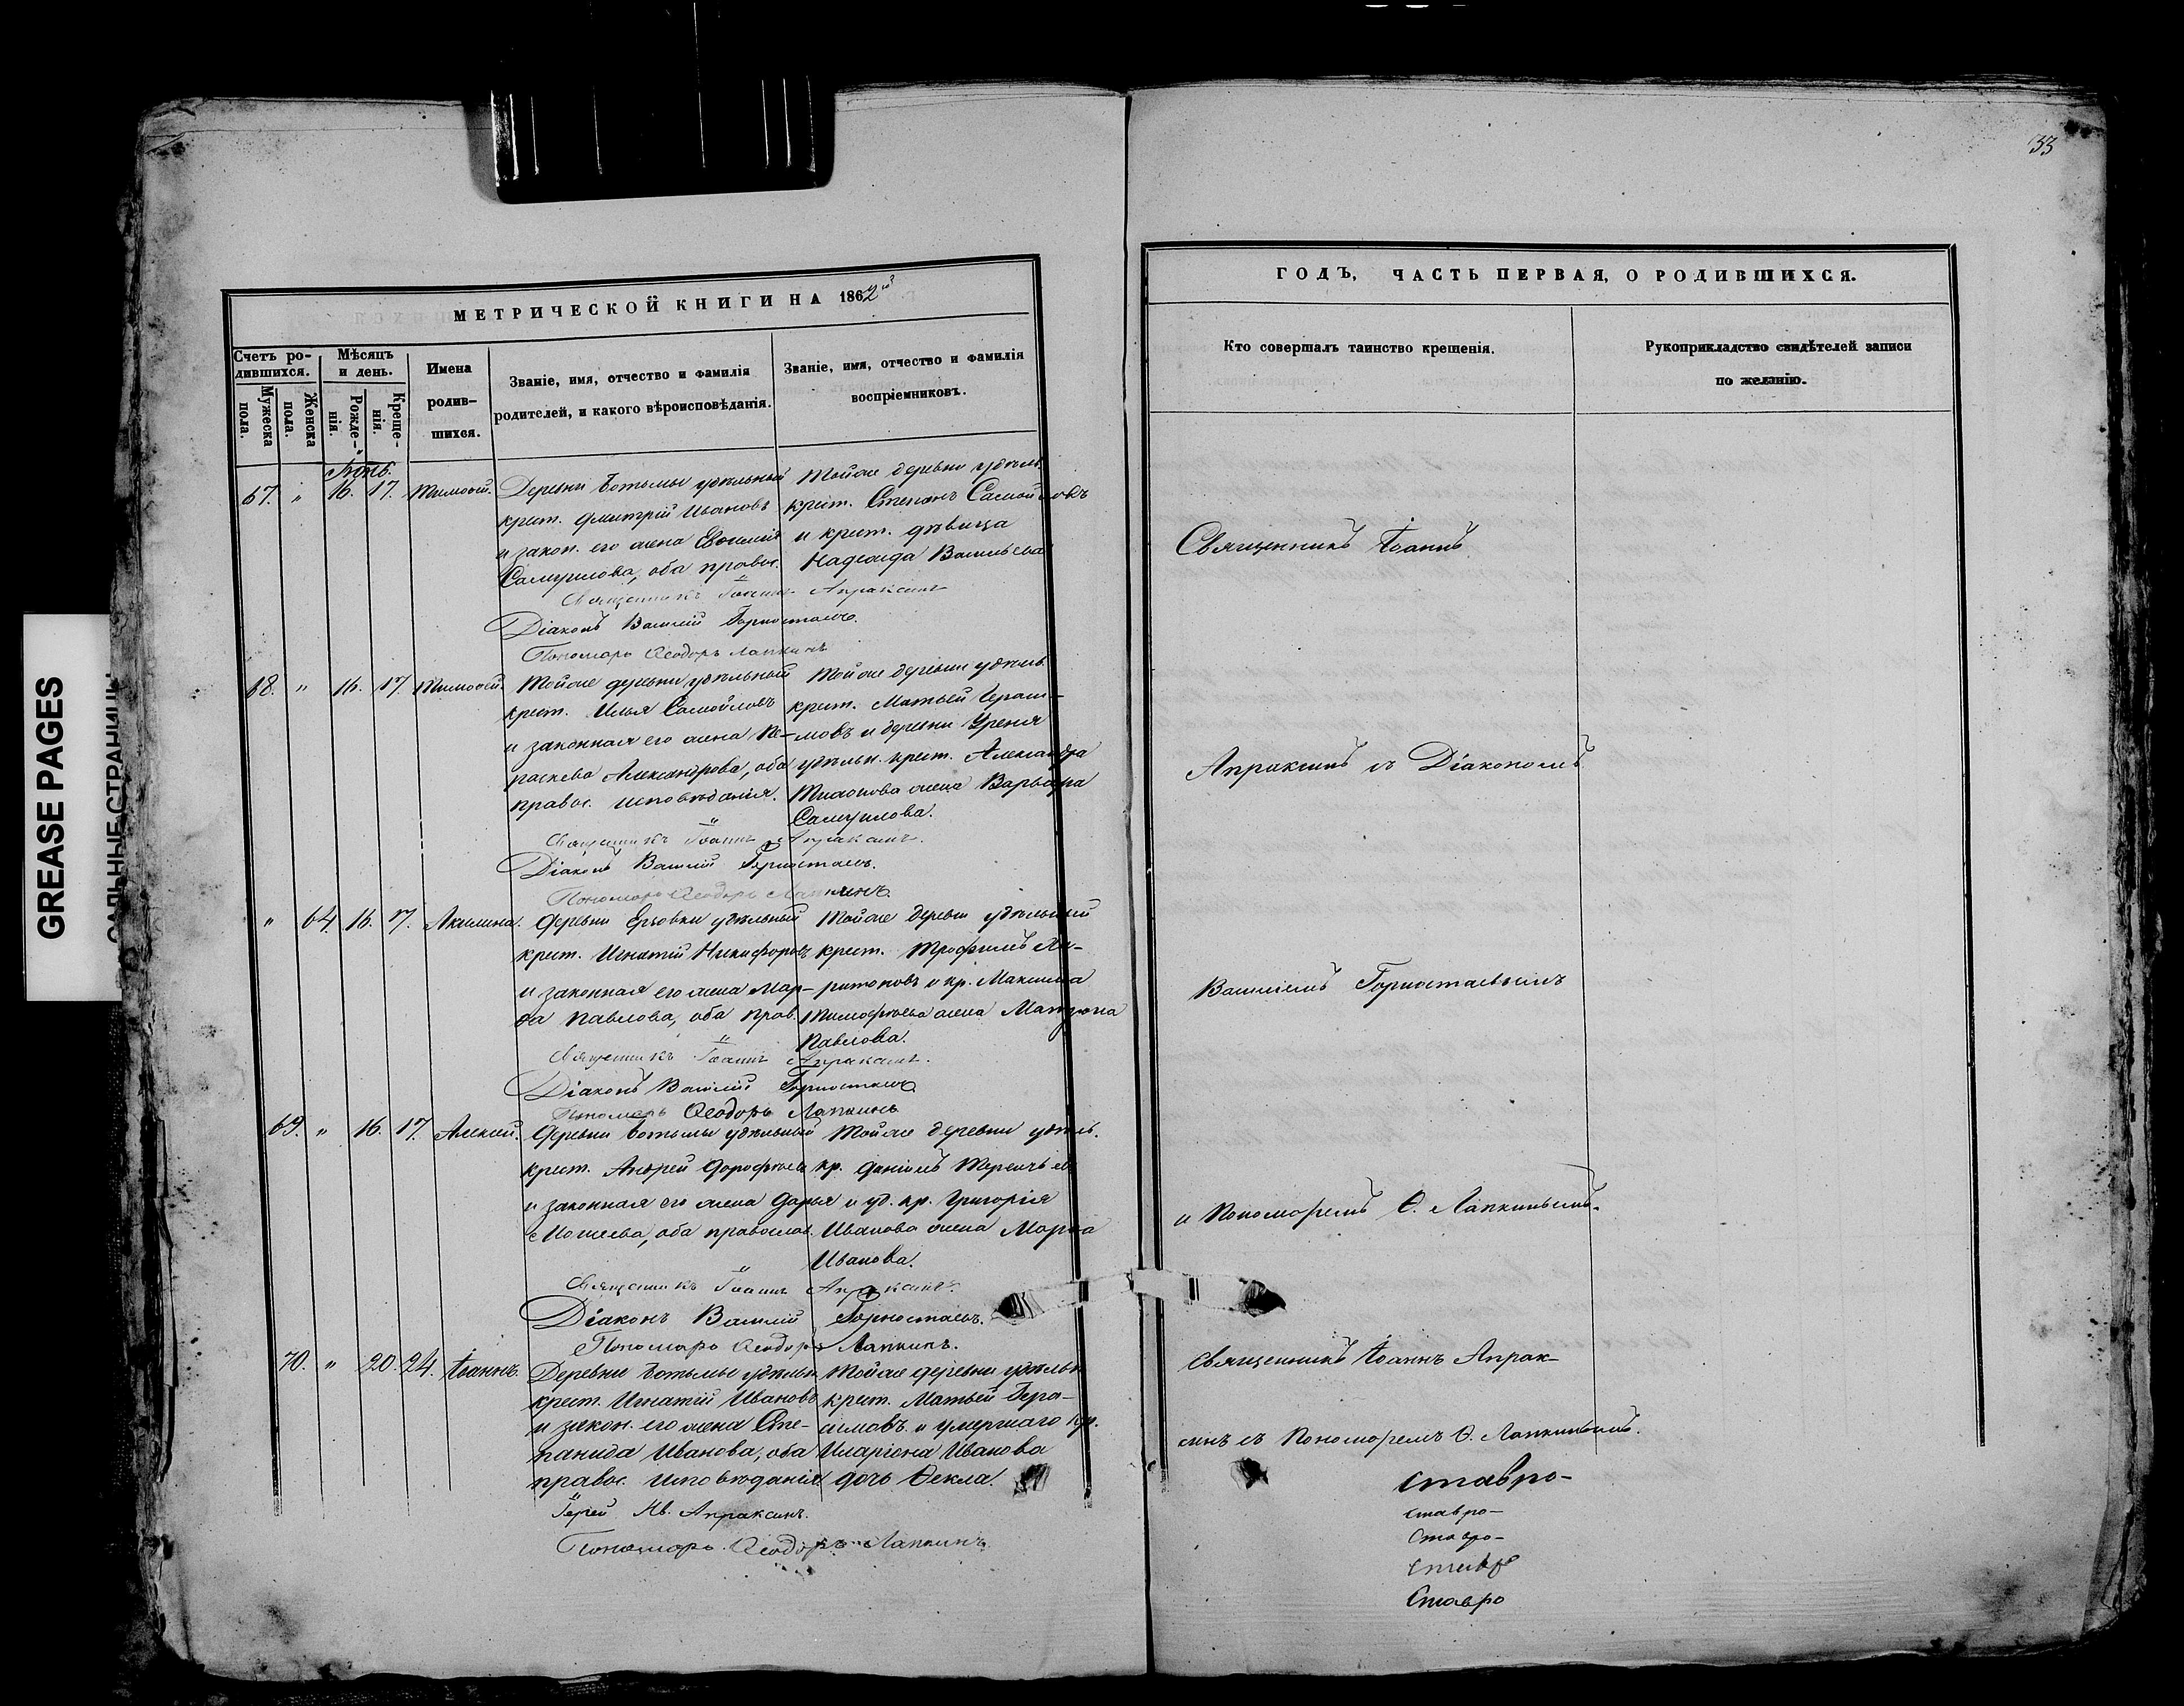 33
GREASE PAGES
САЛЬНЫЕ СТРАНИЦЫ
МЕТРИЧЕСКОЙ КНИГИ НА 1862й
Счетъ ро-
дившихся.
Мужеска
пола.
Женска
пола.
Мѣсяцъ
и день.
Рожде-
нія.
Креще-
нія.
Имена
родив-
шихся.
Званіе, имя, отчество и фамилія
родителей, и какого вѣроисповѣданія.
Званіе, имя, отчество и фамилія
воспріемниковъ.
67. " 16. 17. Тимоѳей. Деревни Ботьмы удѣльный
крест. Дмитрій Ивановъ
и закон. его жена Евѳимія
Самуилова, оба правос.
Тойже деревни удѣль.
крест. Степанъ Самойловъ
и крест. дѣвица
Надежда Васильева
Священникъ Іоаннъ Апраксинъ
Діаконъ Василій Горностаевъ.
Пономарь Ѳеодоръ Лапкинъ
68. " 16. 17. Тимоѳей. Тойже деревни удѣльный
крест. Илья Самойловъ
и законная его жена Па-
раскева Александрова, оба
правос. исповѣданія.
Тойже деревни удѣль.
крест. Матвей Гераси-
мовъ и деревни Уреня
удѣльн. крест. Александра
Тихонова жена Варвара
Самуилова.
Священникъ Іоаннъ Апраксинъ.
Діаконъ Василій Горностаевъ.
Пономарь Ѳеодоръ Лапкинъ.
" 64. 16. 17. Акилина. Деревни Ерзовки удѣльный
крест. Игнатій Никифоровъ
и законная его жена Мар-
ѳа Павлова, оба прав.
Тойже деревни удѣльный
крест. Трофимъ Ха-
ритоновъ и кр. Максима
Тимофѣева жена Матрона
Павлова.
Священникъ Іоаннъ Апраксинъ.
Діаконъ Василій Горностаевъ
Пономарь Ѳеодоръ Лапкинъ
69. " 16. 17. Алексей. Деревни Ботьмы удѣльный
крест. Андрей Дорофѣевъ
и законная его жена Дарья
Моисеева, оба православ.
Тойже деревни удѣль.
кр. Даніилъ Терентьевъ
и уд. кр. Григорія
Иванова жена Марѳа
Иванова.
Священникъ Іоаннъ Апраксинъ.
Діаконъ Василій Горностаевъ.
Пономарь Ѳеодоръ Лапкинъ.
70. " 20. 24. Іоаннъ. Деревни Ботьмы удѣльн
крест. Игнатій Ивановъ
и закон. его жена Сте-
панида Иванова, оба
правос. исповѣданія
Тойже деревни удѣльн
крест. Матвей Гера-
симовъ и умершаго кр.
Иларіона Иванова
дочь Ѳекла.
Іерей Ив. Апраксинъ.
Пономарь Ѳеодоръ Лапкинъ
ГОДЪ, ЧАСТЬ ПЕРВАЯ, О РОДИВШИХСЯ.
Кто совершалъ таинство крещенія.
Рукоприкладство свидѣтелей записи
по желанію.
Священникъ Іоаннъ
Апраксинъ съ Діакономъ
Василіемъ Горностаевымъ
и Пономаремъ Ѳ. Лапкинымъ.
Священникъ Іоаннъ Апрак-
синъ съ Пономаремъ Ѳ. Лапкинымъ.
ставро-
ставро-
Ставро-
Ставр
Ставро